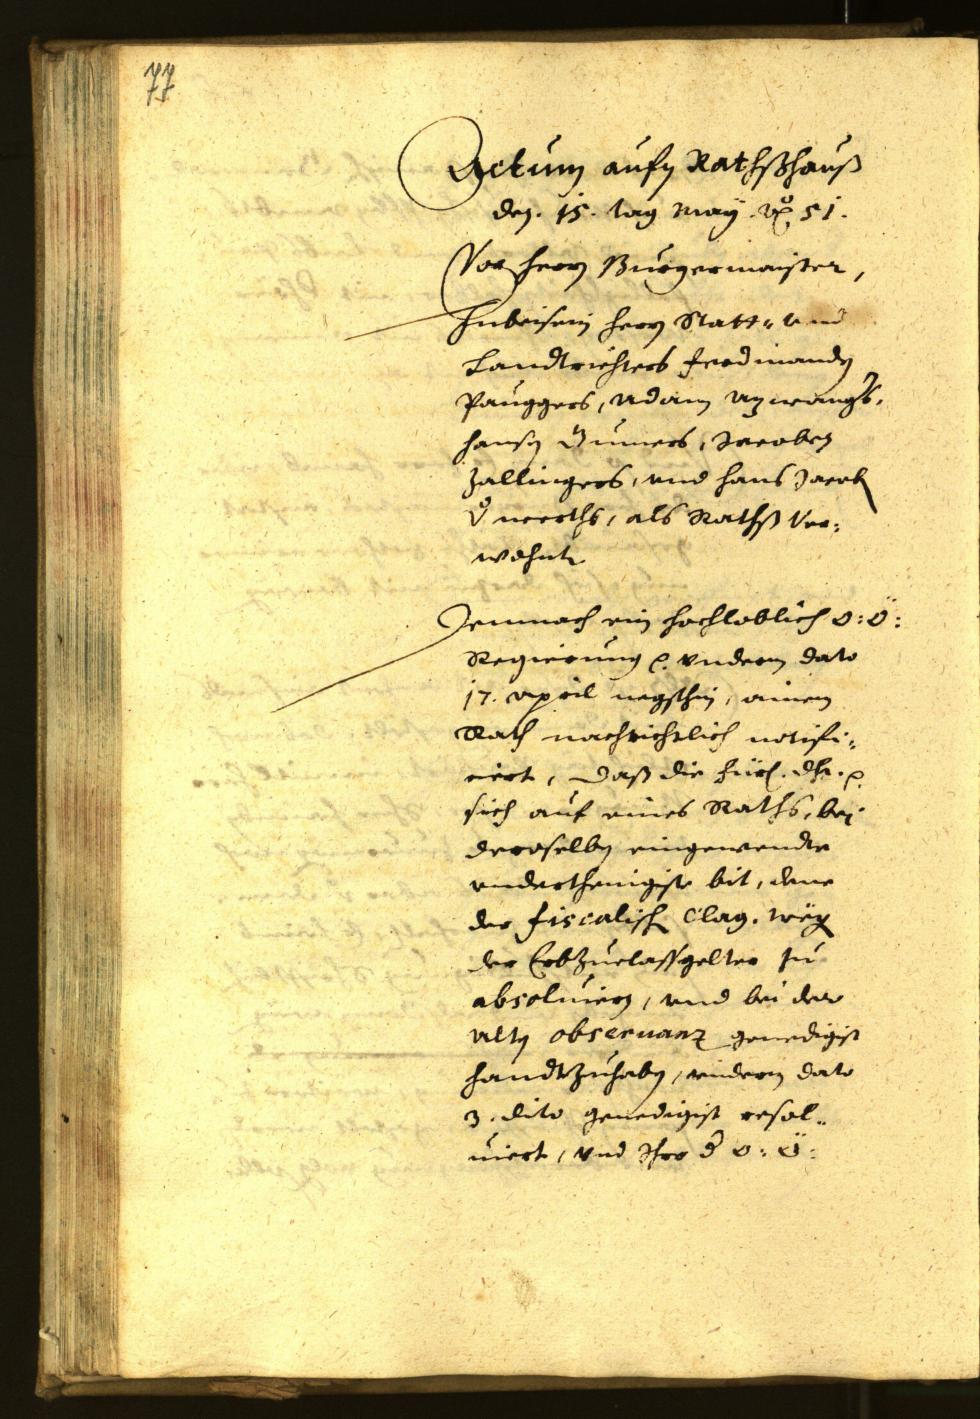 77
Actum aufn Rathßhauß
den. 15. tag May. ao 51.
Vor herrn Burgermaister,
Inbeisein herrn Statt- und
Landtrichters Ferdinanden
Pauggers, Adam
hansen Gumers, Jacoben
Zallingers, und hans Jacob
als Rathß Ver-
wohnte
Demnach ein hochloblich O: Ö:
Regierung p. undern dato
17. April negsthin, ainem
Rath nachrichtlich notifi-
ciert, Daß die Fürl. dhl. p.
sich auf eines Raths, bei
deroselben eingewendte
underthenigiste bit, dene
der fiscalisch Clag. weg
der Erbzuelassgelter zu
absoluiern, und bei der
alten obseruanz genedigist
handtzuhaben, undern dato
3. dito genedigist resol-
uiert, und Ihro O: Ö: